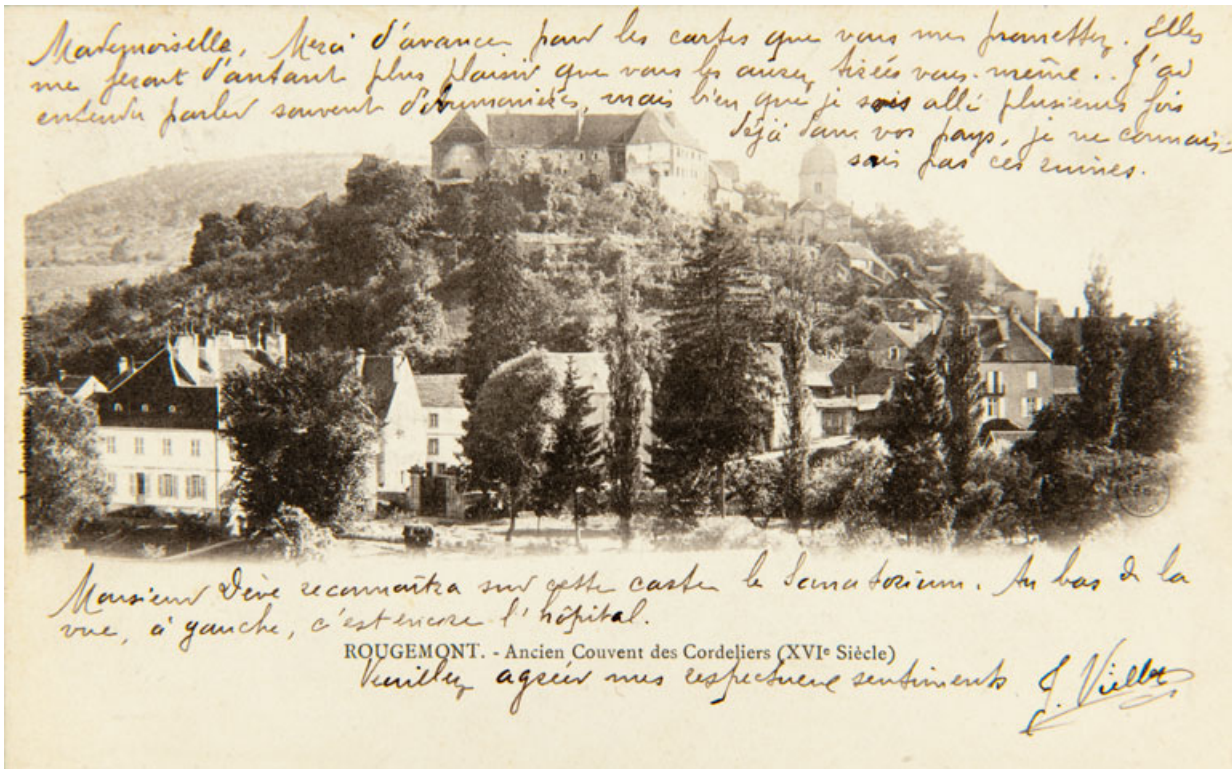 Mademoiselle, Merci d'avance pour les cartes que vous me promettez. Elles
me feront d'autant plus plaisir que vous les aurez tirées vous-même.. J'ai
entendu parler souvent mais bien que je sois allé plusieurs fois
déjà dans vos pays, je ne connais-
sais pas ces ruines.
Monsieur Dève reconnaîtra sur cette carte le Sanatorium. Au bas de la
vue, à gauche, c'est encore l'hôpital.
ROUGEMONT. - Ancien Couvent des Cordeliers (XVIe Siècle)
Veuillez agréer mes respectueux sentiments J.